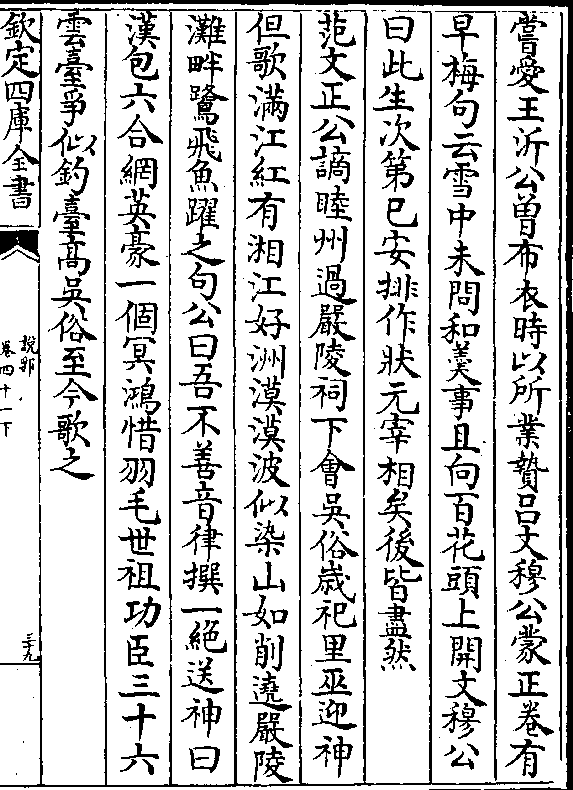 嘗愛王沂公曽布衣時以所業贄呂文穆公蒙正卷有
早梅句云雪中未問和羮事且向百花頭上開文穆公
曰此生次第已安排作狀元宰相矣後皆盡然
范文正公謫睦州過嚴陵祠下會吳俗歳祀里巫迎神
但歌滿江紅有湘江好洲漠漠波似染山如削遶嚴陵
灘畔鷺飛魚躍之句公曰吾不善音律撰一絕送神曰
漢包六合網英豪一個冥鴻惜羽毛世祖功臣三十六
雲臺爭似釣臺髙吳俗至今歌之
欽定四庫全書
說郛
卷四十一下
三九